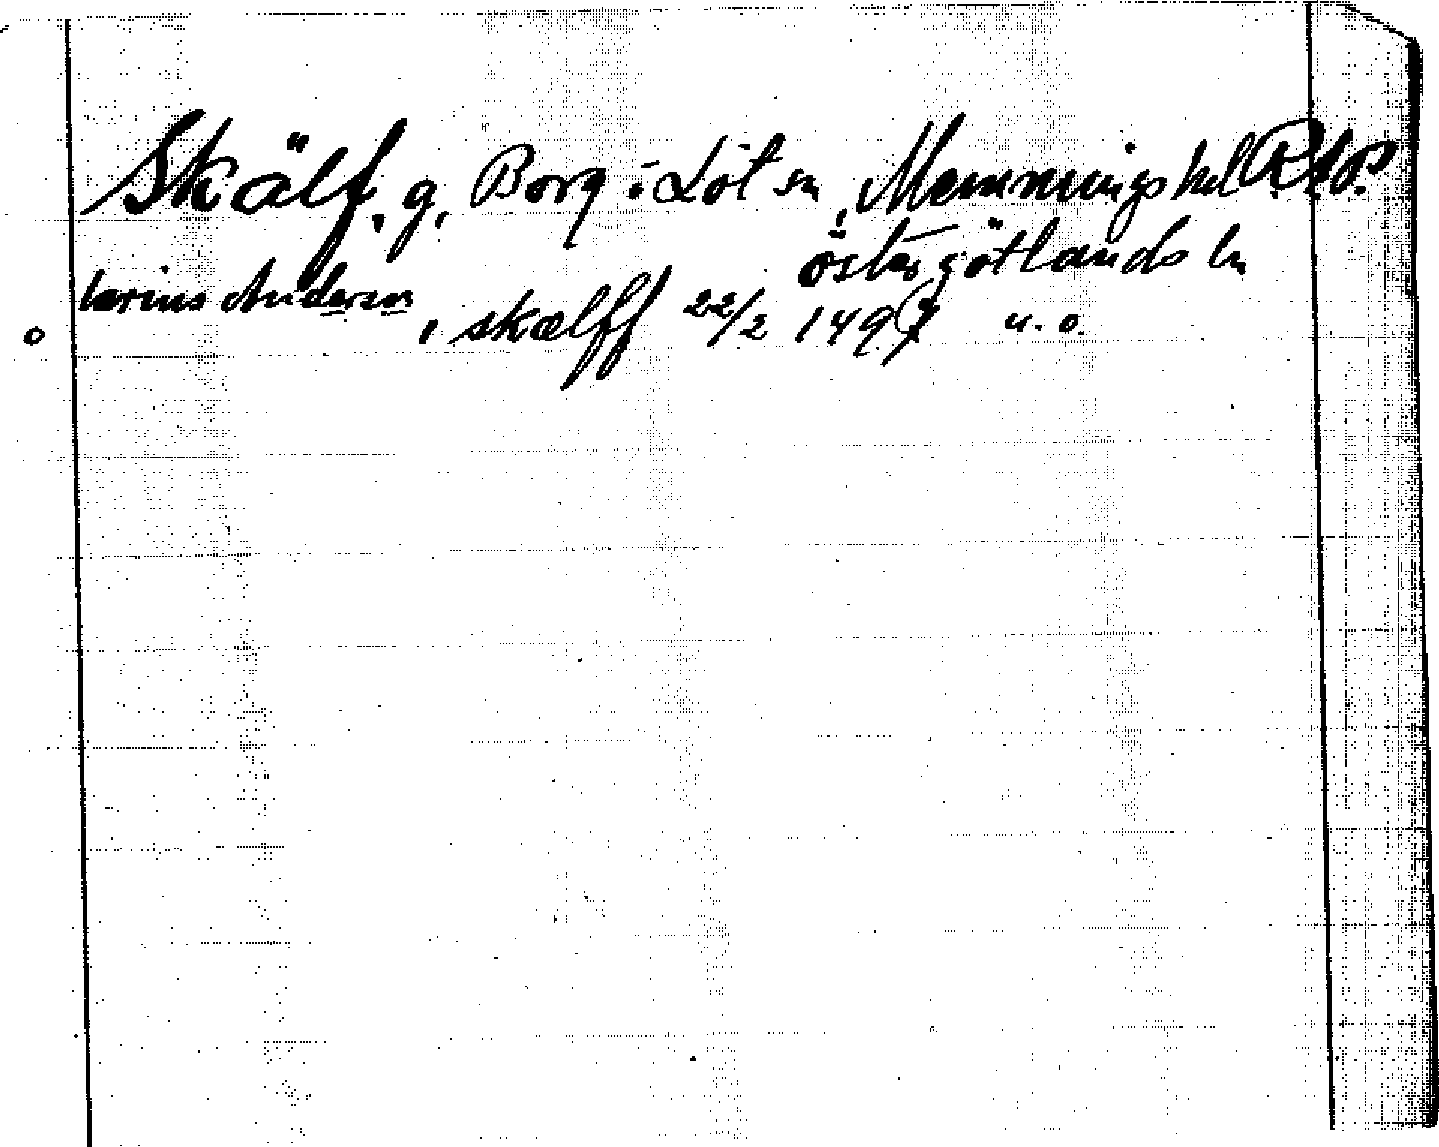 Skälf, g, Borg i Löt sn, Memmings hd RAp
Östergötlands ln
larins Andersen
o , i skælff 22/2 1497 u. o.